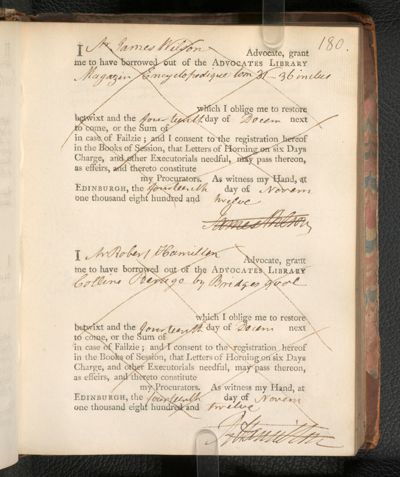 180.
I Mr James Wilson Advocate, grant
me to have borrowed out of the ADVOCATES LIBRARY
Magazin Encyclopedique tom 31 - 36 inclus
which I oblige me to restore
betwixt and the fourteenth day of Decem next
to come, or the Sum of
in case of Failzie; and I consent to the registration hereof
in the Books of Session, that Letters of Horning on six Days
Charge, and other Executorials needful, may pass thereon,
as effeirs, and thereto constitute
my Procurators. As witness my Hand, at
EDINBURGH, the fourteenth day of Novem
one thousand eight hundred and twelve
James Wilson
I Mr Robert Hamilton Advocate, grant
me to have borrowed out of the ADVOCATES LIBRARY
Collins Peerage by Bridges 9 vol
which I oblige me to restore
betwixt and the fourteenth day of Decem next
to come, or the Sum of
in case of Failzie; and I consent to the registration hereof
in the Books of Session, that Letters of Horning on six Days
Charge, and other Executorials needful, may pass thereon,
as effeirs, and thereto constitute
my Procurators. As witness my Hand, at
EDINBURGH, the fourteenth day of Novem
one thousand eight hundred and twelve
R Hamilton